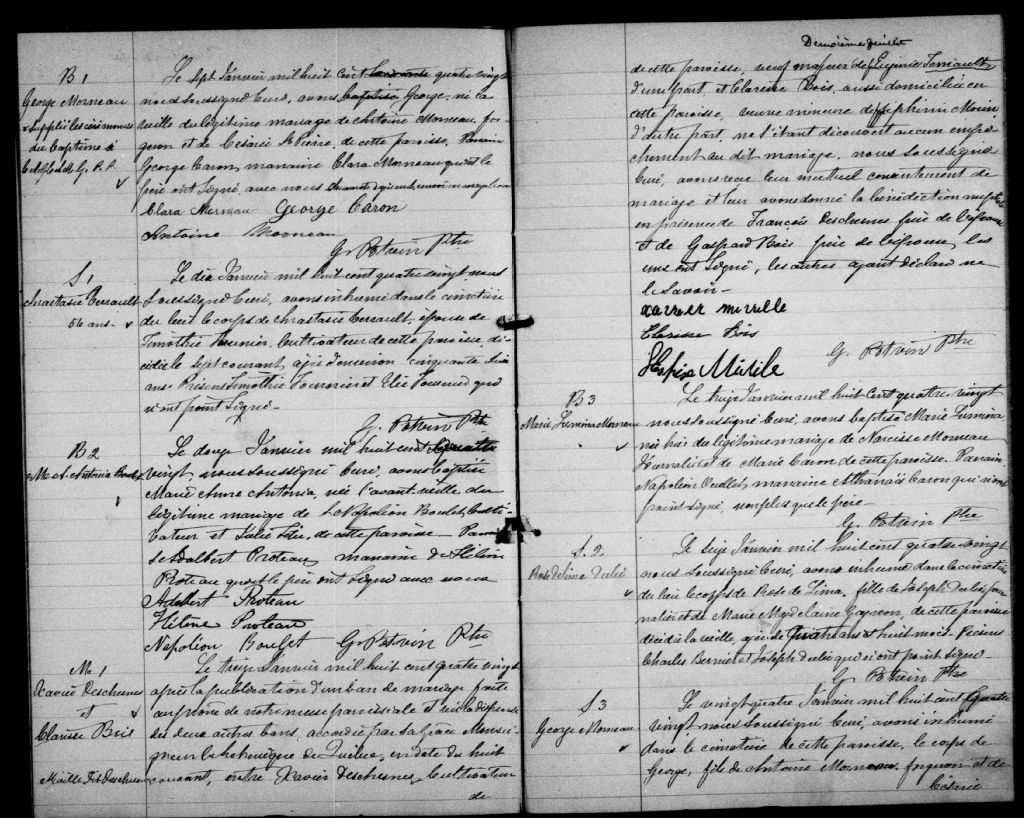 B 1
George Morneau
Le sept Janvier mil huit cent soixante quatre vingt
nous soussigné Curé, avons baptisé George, né la
veille du légitime mariage de Antoine Morneau, for-
geron et de Césarie St Pierre, de cette paroisse, Parrain
George Caron, marraine Clara Morneau qui et le
père ont signé avec nous
Clara Morneau George Caron
Antoine Morneau
G. Potvin Ptre
S 1
Anastasie Perrault
56 ans
Le dix Janvier mil huit cent quatre vingt nous
soussigné Curé, avons inhumé dans le cimetière
du lieu le corps de Anastasie Perrault, épouse de
Timothée Fournier, Cultivateur de cette paroisse, dé-
cédée le sept courant, agée d'environ cinquante six
ans. Présens Timothée Fournier et Elie Fournier qui
n'ont point signé.
G. Potvin Ptre
B 2
M. A. Antonia Boulet
Le douze Janvier mil huit cent quatre
vingt, nous soussigné Curé, avons baptisé
Marie Anne Antonia, née l'avant-veille du
légitime mariage de Napoléon Boulet, Culti-
vateur et Julie de cette paroisse. Parrain
Adalbert Proteau, marraine Hélène
Proteau qui et le père ont signé avec nous
Adelbert Proteau
Hélène Proteau
Napoléon Boulet G. Potvin Ptre
M 1
Xavier Deschesnes
et
Clarisse Bois
Le treize Janvier mil huit cent quatre vingt
après la publication d'un ban de mariage faite
au prône de notre messe paroissiale et vu la dispense
des deux autres bans, accordée par sa Grâce Monsei-
gneur l'archevêque de Québec, en date du huit
courant, entre Xavier Deschesnes, Cultivateur
de
Deuxième feuillet
de cette paroisse, veuf majeur de Eugénie Tarriault,
d'une part, et Clarisse Bois, aussi domiciliée en
cette paroisse, veuve mineure de Morin
d'autre part, ne s'étant découvert aucun empê-
chement au dit mariage, nous soussigné
Curé, avons reçu leur mutuel consentement de
mariage et leur avons donné la bénédiction nuptiale
en présence de François Deschesnes père de l'époux
et de Gaspard Bois père de l'épouse, les
uns ont signé, les autres ayant déclaré ne
le savoir.
Clarisse Bois
G. Potvin Ptre
B 3
Marie Morneau
Le treize Janvier mil huit cent quatre vingt
nous soussigné Curé, avons baptisé Marie
née hier du légitime mariage de Narcisse Morneau
Journalier et de Marie Caron de cette paroisse. Parrain
Napoléon Ouellet, marraine Athanaïs Caron qui n'ont
point signé, non plus que le père
G. Potvin Ptre
S. 2
Rose de Lima Dubé
Le seize Janvier mil huit cent quatre vingt
nous soussigné Curé, avons inhumé dans le cimetière
du lieu le corps de Rose de Lima, fille de Joseph Dubé Jour-
nalier et de Marie Magdelaine Gagnon, de cette paroisse
décédée la veille, agée de quatre ans et huit mois. Présens
Charles Bernier et Joseph Dubé qui n'ont point signé
G. Potvin Ptre
S 3
George Morneau
Le vingt quatre Janvier mil huit cent quatre
vingt, nous soussigné Curé, avons inhumé
dans le cimetière de cette paroisse, le corps de
George, fils de Antoine Morneau, forgeron et de
Césarie